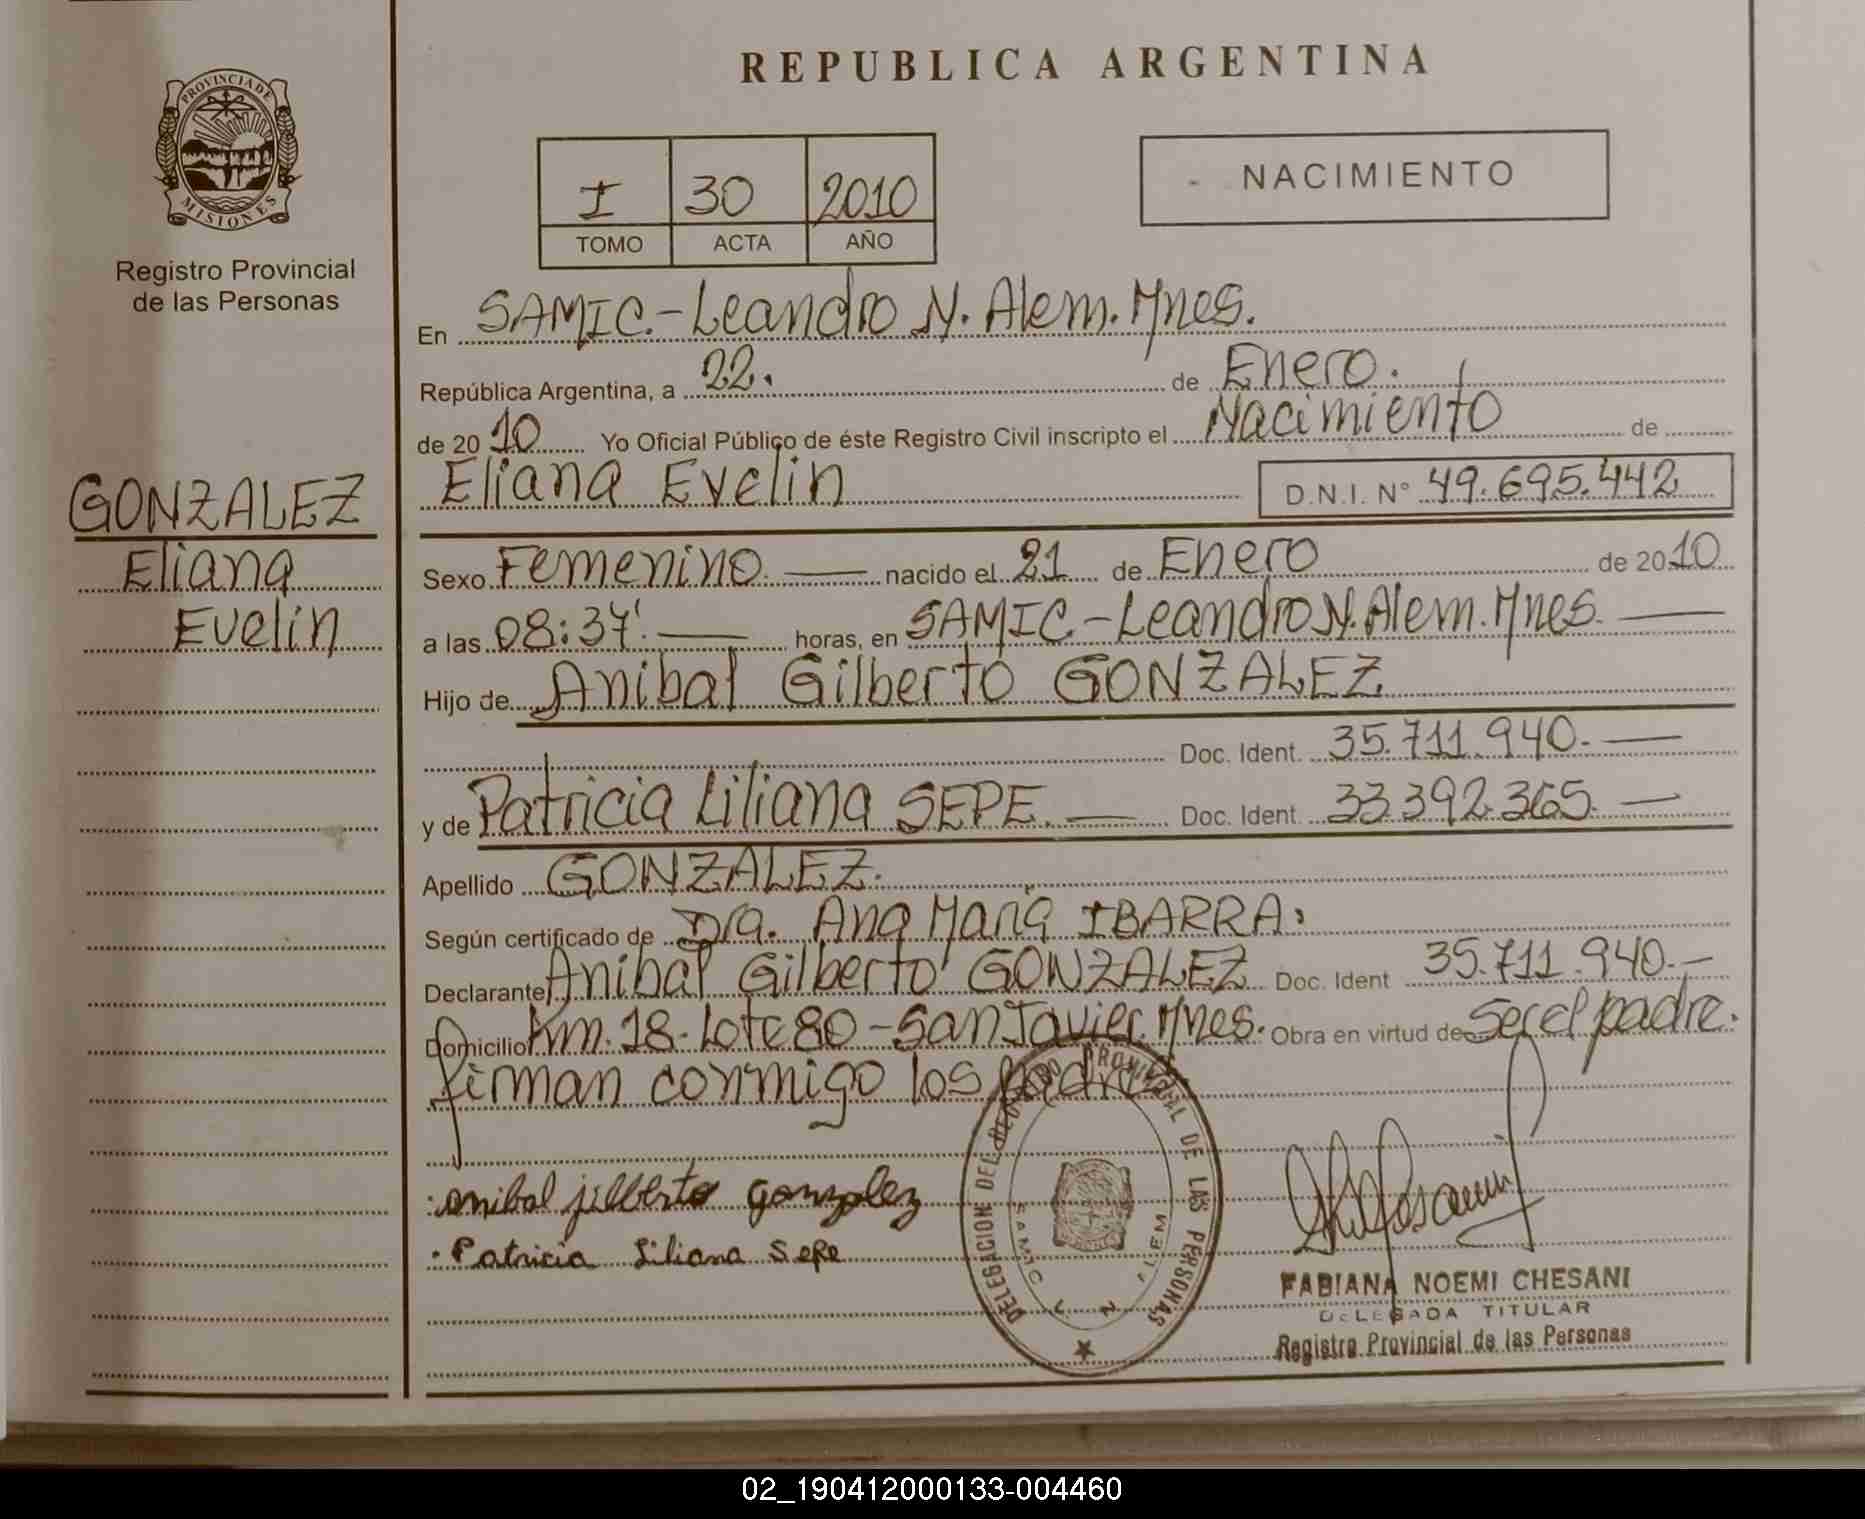 REPUBLICA ARGENTINA
PROVINCIA DE
MISIONES
Registro Provincial
de las Personas
I 30 2010
TOMO ACTA AÑO
NACIMIENTO
En SAMIC.-Leandro N. Alem. Mnes.
República Argentina, a 22. de Enero.
de 2010 Yo Oficial Público de éste Registro Civil inscripto el Nacimiento de
Eliana Evelin D.N.I. N° 49.695.442
GONZALEZ
Eliana
Evelin
Sexo Femenino. — nacido el 21 de Enero de 2010
a las 08:37'. — horas, en SAMIC.-Leandro N. Alem. Mnes. —
Hijo de Anibal Gilberto GONZALEZ
Doc. Ident. 35.711.940.-—
y de Patricia Liliana SEPE. — Doc. Ident. 33.392.365. —
Apellido GONZALEZ.
Según certificado de Dra. Ana Maria IBARRA.
Declarante Anibal Gilberto GONZALEZ Doc. Ident 35.711.940.-
Domicilio Km. 18-Lote 80-San Javier. Mnes. Obra en virtud de Ser el padre.
firman conmigo los padres
anibal jilberto gonzalez
Patricia Liliana Sepe
DELEGACION DEL REGISTRO PROVINCIAL DE LAS PERSONAS
SAMIC L. N. ALEM
FABIANA NOEMI CHESANI
DELEGADA TITULAR
Registro Provincial de las Personas
02_190412000133-004460